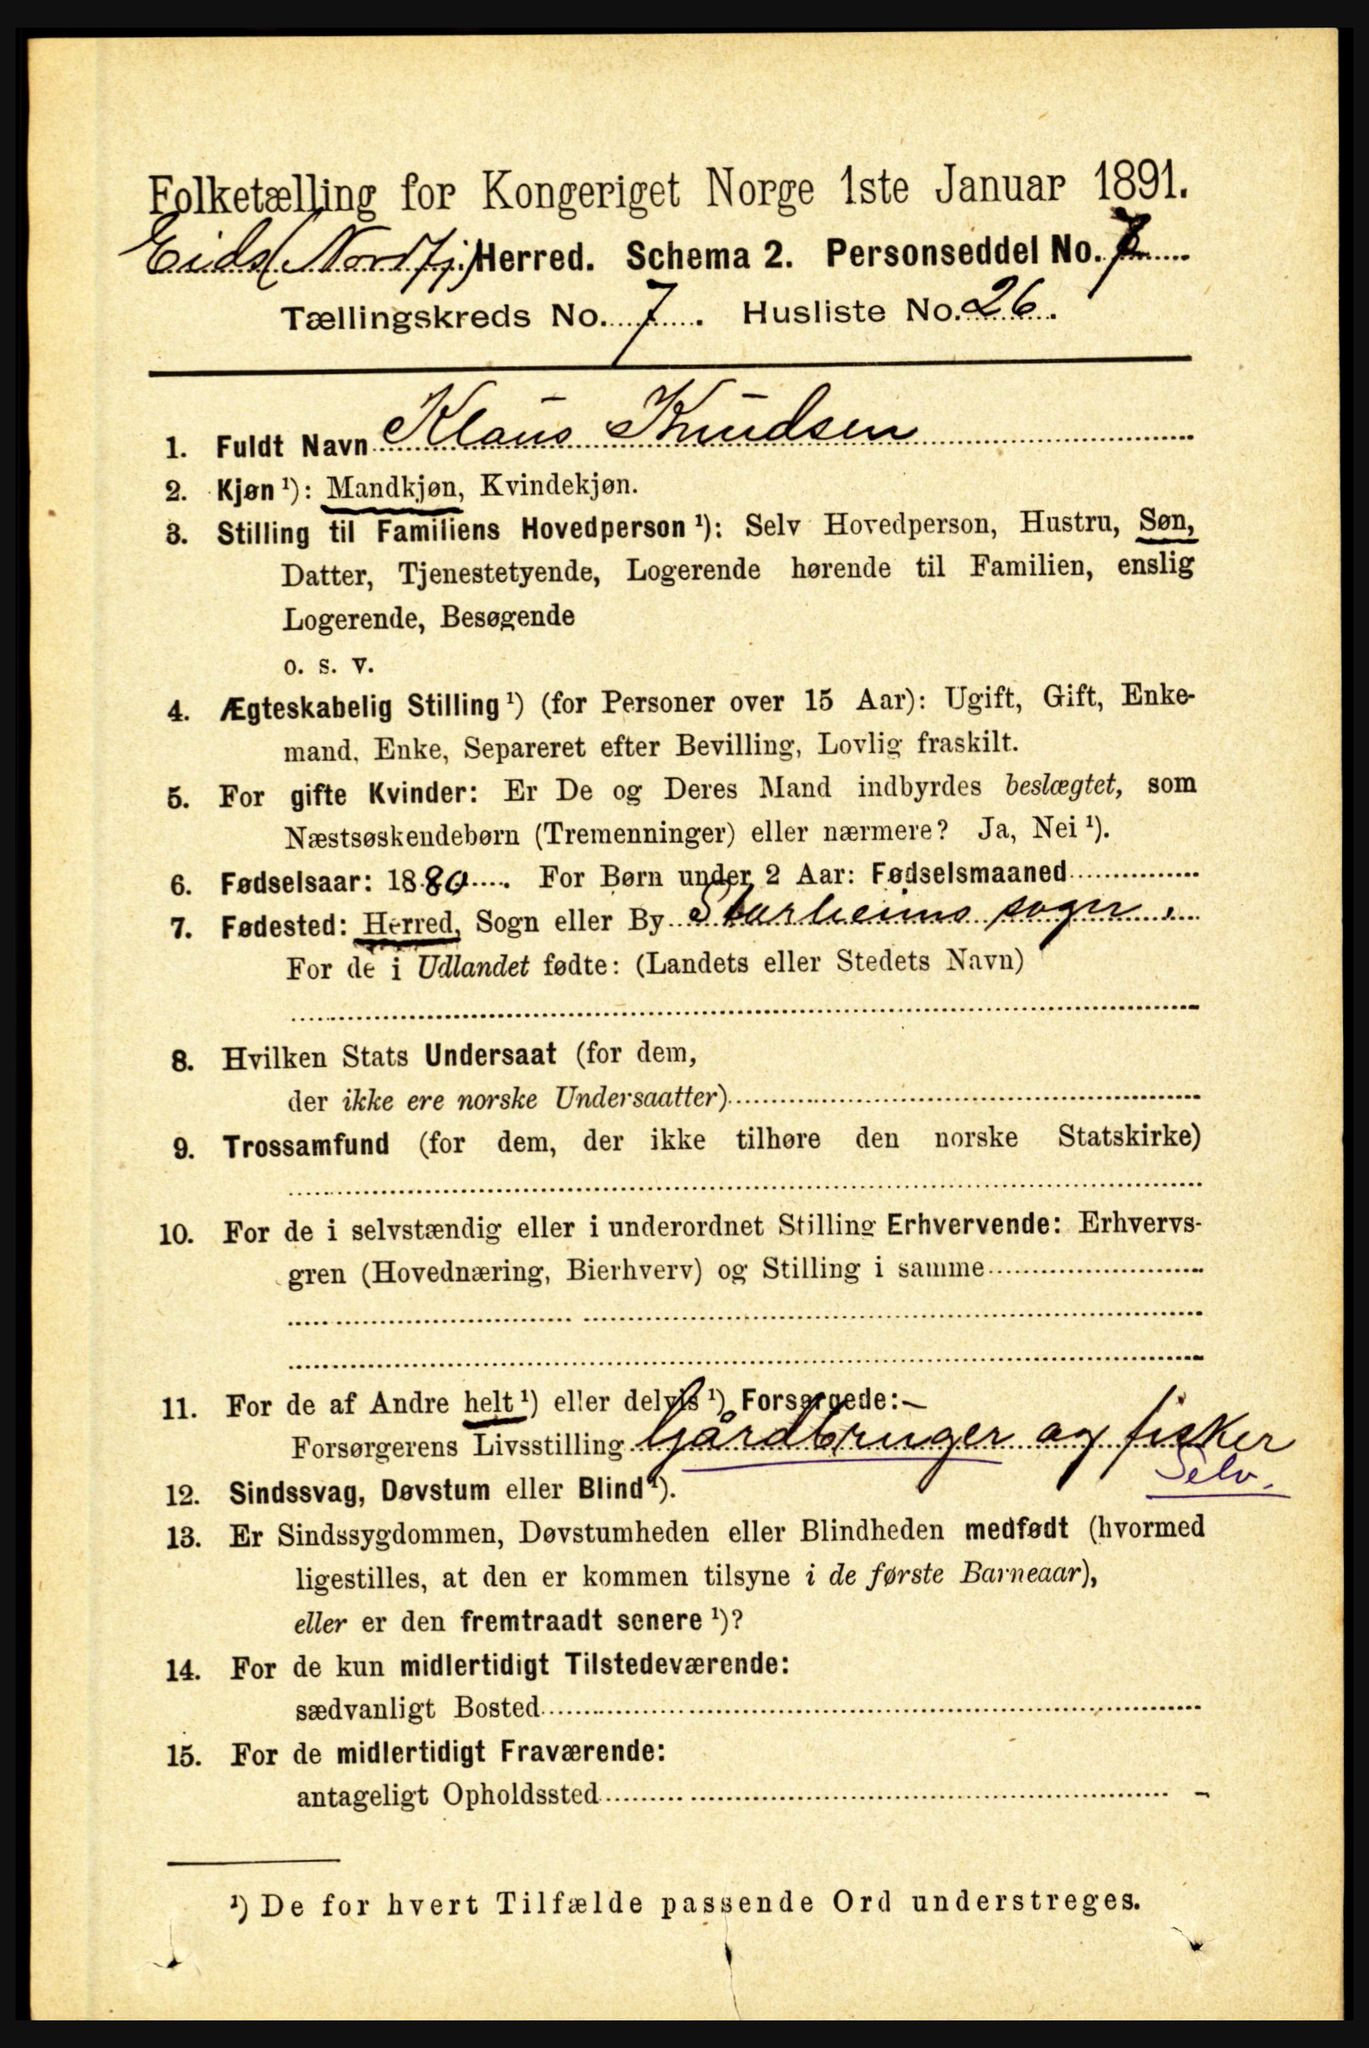 Folketælling for Kongeriget Norge 1ste Januar 1891.
Eids (Nordfj.) Herred. Schema 2. Personseddel No. 7
Tællingskreds No. 7. Husliste No. 26.
1. Fuldt Navn Klaus Knudsen
2. Kjøn ¹): Mandkjøn, Kvindekjøn.
3. Stilling til Familiens Hovedperson ¹): Selv Hovedperson, Hustru, Søn,
Datter, Tjenestetyende, Logerende hørende til Familien, enslig
Logerende, Besøgende
o. s. v.
4. Ægteskabelig Stilling ¹) (for Personer over 15 Aar): Ugift, Gift, Enke-
mand, Enke, Separeret efter Bevilling, Lovlig fraskilt.
5. For gifte Kvinder: Er De og Deres Mand indbyrdes beslægtet, som
Næstsøskendebørn (Tremenninger) eller nærmere? Ja, Nei ¹).
6. Fødselsaar: 1880. For Børn under 2 Aar: Fødselsmaaned
7. Fødested: Herred, Sogn eller By Starheims sogn.
For de i Udlandet fødte: (Landets eller Stedets Navn)
8. Hvilken Stats Undersaat (for dem,
der ikke ere norske Undersaatter)
9. Trossamfund (for dem, der ikke tilhøre den norske Statskirke)
10. For de i selvstændig eller i underordnet Stilling Erhvervende: Erhvervs-
gren (Hovednæring, Bierhverv) og Stilling i samme
11. For de af Andre helt ¹) eller delvis ¹) Forsørgede:
Forsørgerens Livsstilling Gårdbruger og fisker
Selv.
12. Sindssvag, Døvstum eller Blind ¹).
13. Er Sindssygdommen, Døvstumheden eller Blindheden medfødt (hvormed
ligestilles, at den er kommen tilsyne i de første Barneaar),
eller er den fremtraadt senere ¹)?
14. For de kun midlertidigt Tilstedeværende:
sædvanligt Bosted
15. For de midlertidigt Fraværende:
antageligt Opholdssted
¹) De for hvert Tilfælde passende Ord understreges.